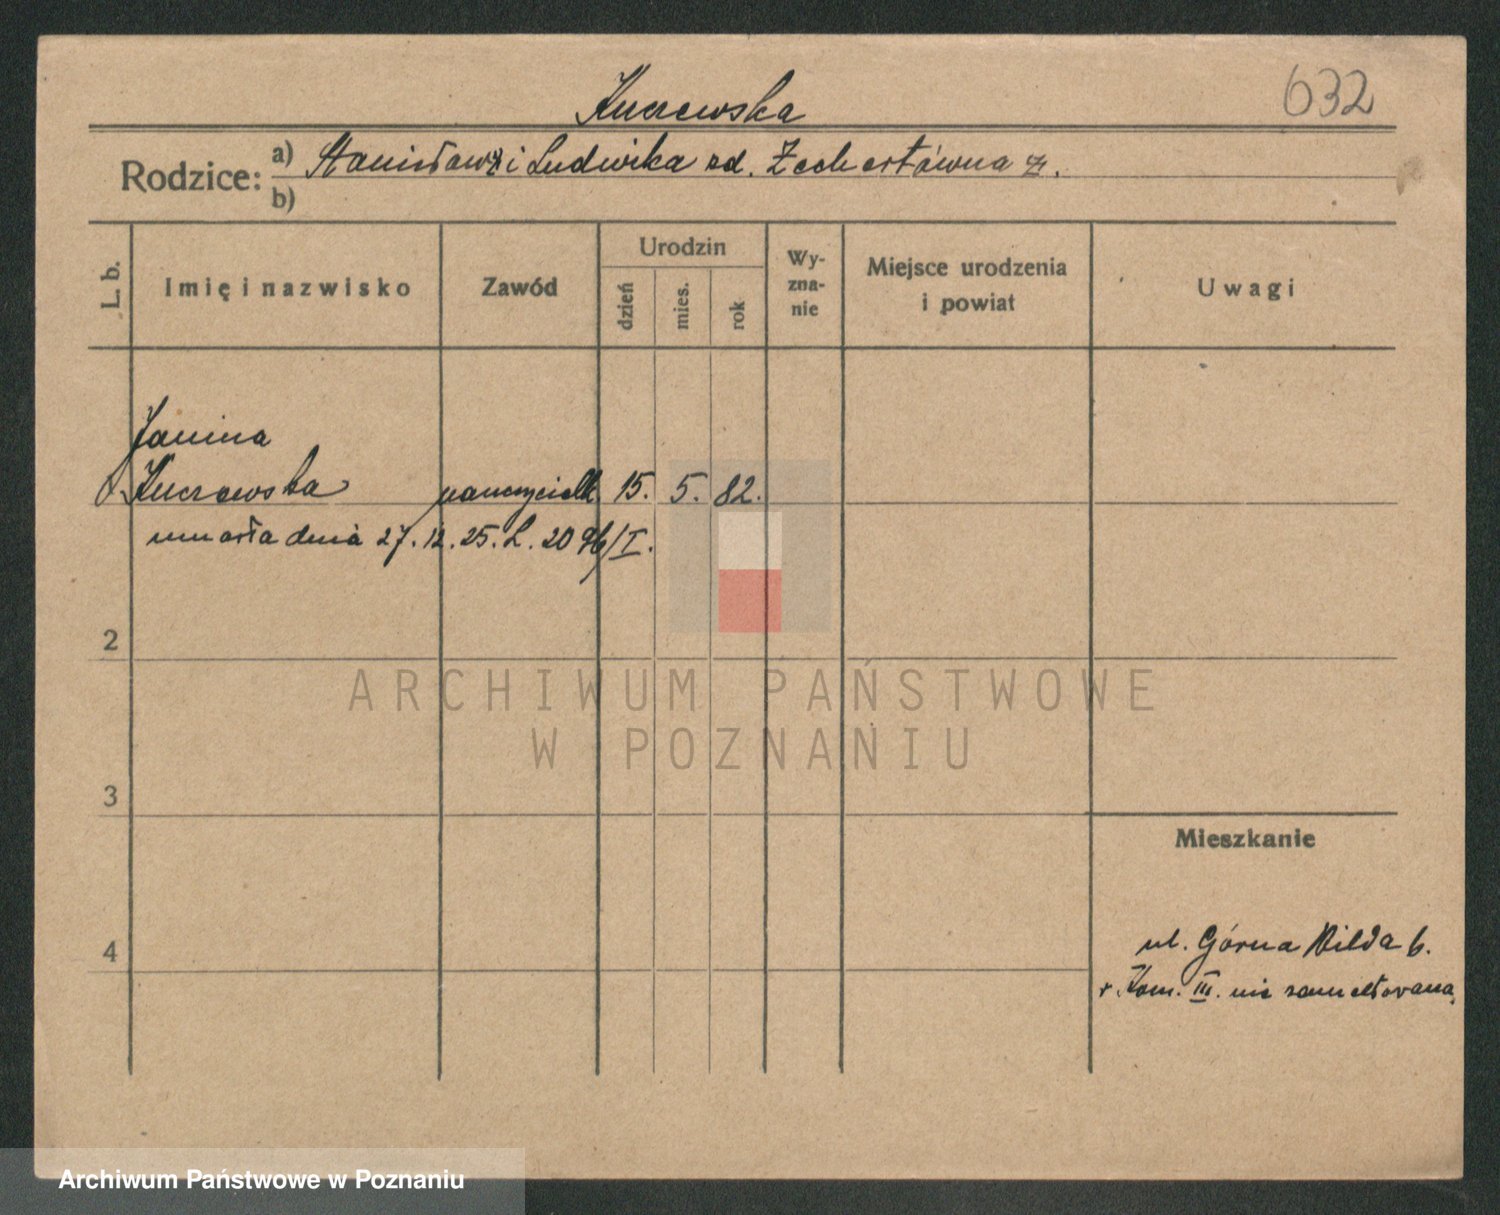 632
Kuczewska
Rodzice: a) Stanisław i Ludwika zd. Zechertówna zm.
b)
L. b. Imię i nazwisko Zawód Urodzin dzień mies. rok Wyznanie Miejsce urodzenia i powiat Uwagi
Janina
Kuczewska nauczycielk. 15. 5. 82.
umarła dnia 27. 12. 25. L. 2096/I.
2
3
4
Mieszkanie
ul. Górna Wilda 6.
w Kom. III. nie zameldowana
ARCHIWUM PAŃSTWOWE
W POZNANIU
Archiwum Państwowe w Poznaniu